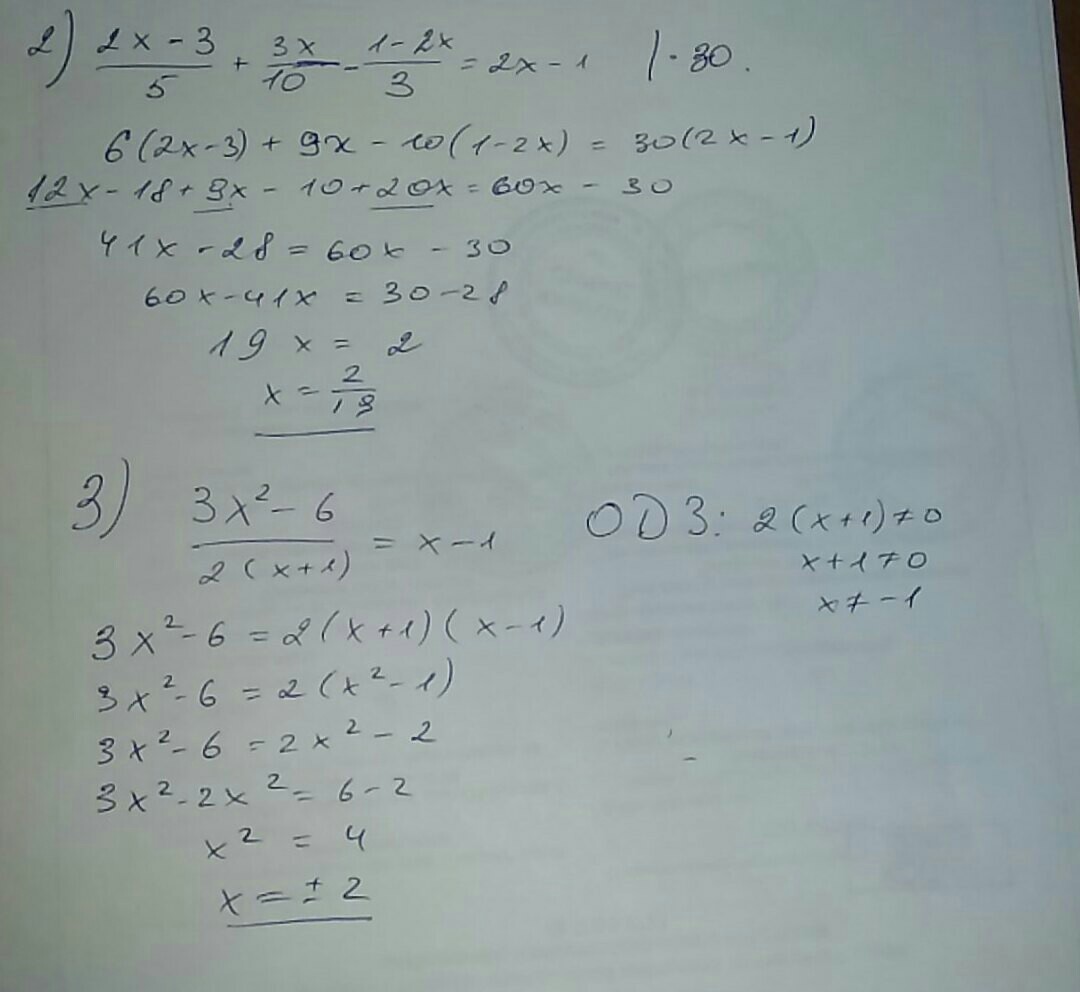 2) (2x - 3)/5 + 3x/10 - (1 - 2x)/3 = 2x - 1 | · 30.
6(2x-3) + 9x - 10(1-2x) = 30(2x-1)
12x - 18 + 9x - 10 + 20x = 60x - 30
41x - 28 = 60x - 30
60x - 41x = 30 - 28
19 x = 2
x = 2/19
3) (3x² - 6)/(2(x+1)) = x - 1
ОДЗ: 2(x+1) ≠ 0
x + 1 ≠ 0
x ≠ -1
3x² - 6 = 2(x+1)(x-1)
3x² - 6 = 2(x² - 1)
3x² - 6 = 2x² - 2
3x² - 2x² = 6 - 2
x² = 4
x = ± 2